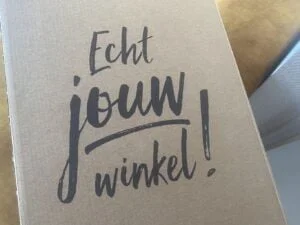 Echt
jouw
winkel!